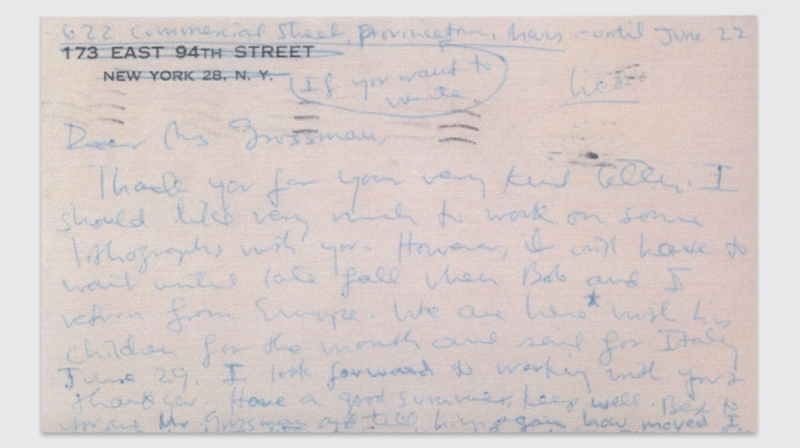 622 Commercial Street, Provincetown, Mass. - until June 22
173 EAST 94TH STREET
NEW YORK 28, N. Y.
(If you want to
write
Dear Mrs Grossman,
Thank you for your very kind letter. I
should like very much to work on some
lithographs with you. However, I will have to
wait until late fall when Bob and I
return from Europe. We are here* with his
children for the month and sail for Italy
June 29. I look forward to working with you &
thank you. Have a good summer, keep well. Best to
you and Mr Grossman and tell him again how moved I